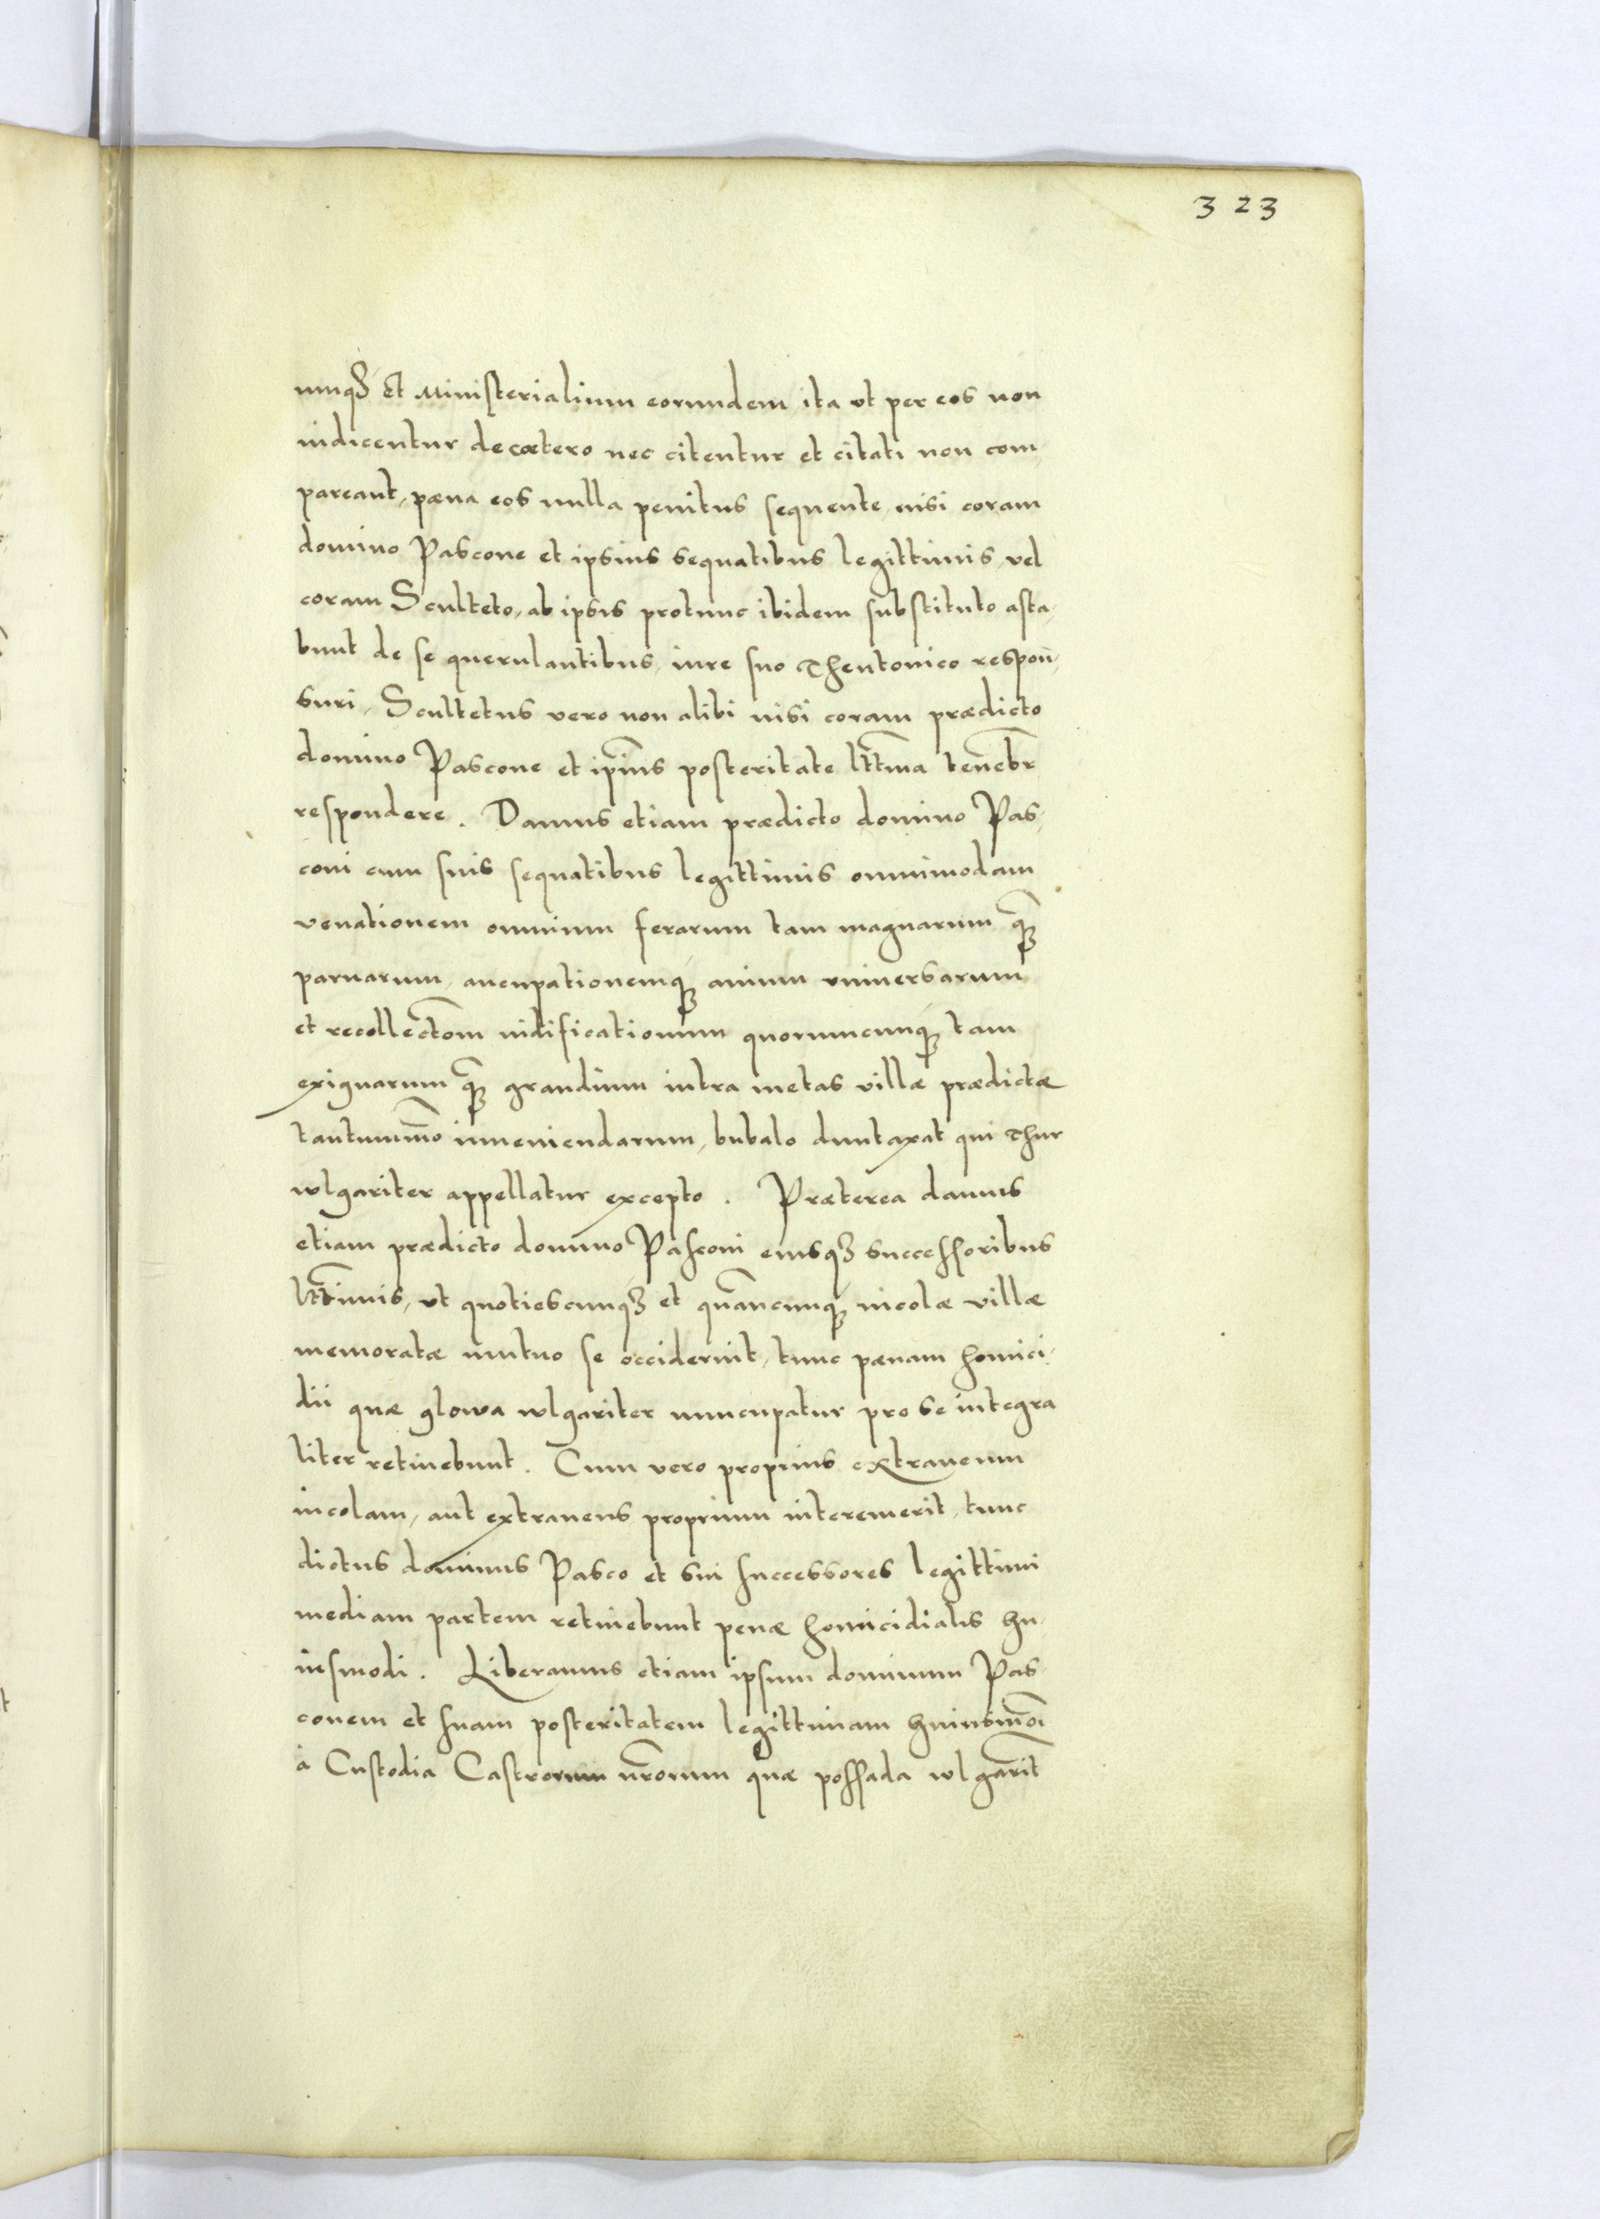 323
umqȝ et Ministerialium eorundem ita vt per eos non
iudicentur decætero nec citentur et citati non com
pareant, pæna eos nulla penitus sequente nisi coram
domino Pascone et ipsius sequatibus legittimis, vel
coram Sculteto, ab ipsis protunc ibidem substituto asta,
bunt de se querulantibus, iure suo Theutonico respon̄,
suri, Scultetus vero non alibi nisi coram prædicto
domino Pascone et ip̄ius posteritate ltt̄ima teneb̄r
respondere. Damus etiam prædicto domino Pas,
coni cum suis sequatibus legittimis omnimodam
venationem omnium ferarum tam magnarum q̄ȝ
paruarum, aucupationemqȝ auium vniuersarum
et recollecto͞m nidificationum quorumcunqȝ tam
exiguarum q̄ȝ grandium intra metas villæ prædictæ
tantummo͞ inueniendarum, bubalo duntaxat qui Thur
wlgariter appellatur excepto. Præterea damus
etiam prædicto domino Pasconi eiusqȝ successoribus
ltt̄imis, vt quotiescunqȝ et qn̄ancunqȝ incolæ villæ
memoratæ mutuo se occiderint, tunc pænam homici,
dii quæ glowa wlgariter nuncupatur pro se integra
liter retinebunt. Cum vero proprius extraneum
incolam, aut extraneus proprium interemerit, tunc
dictus dominus Pasco et sui successores legittimi
mediam partem retinebunt penæ homicidialis hu,
iusmodi. Liberamus etiam ipsum dominum Pas
conem et suam posteritatem legittimam huiusmo͞i
à Custodia Castrorum nr̄orum quæ possada wlgarit̄